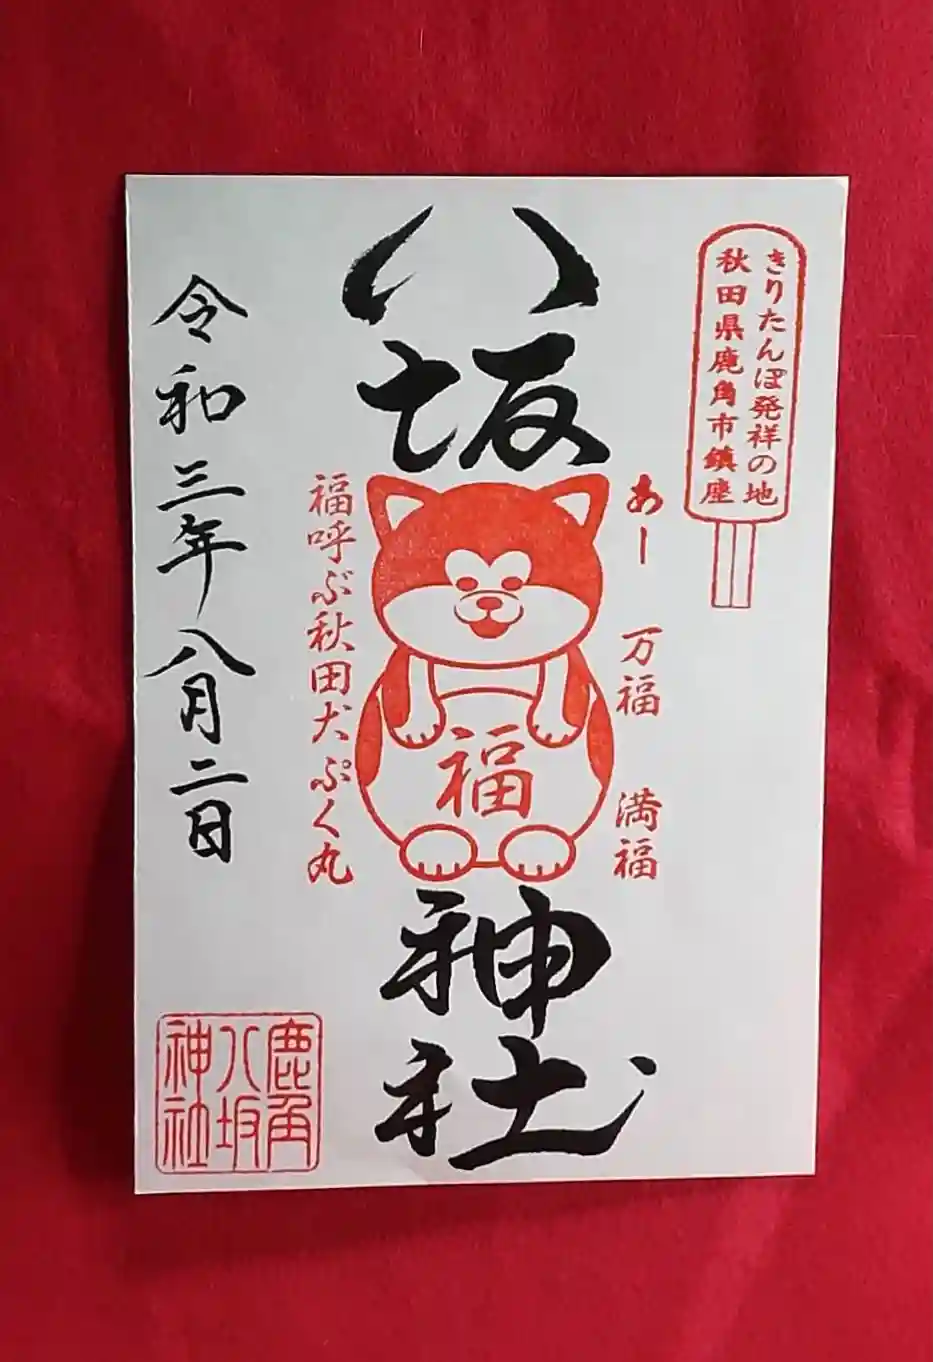 きりたんぽ発祥の地
秋田県鹿角市鎮座
あー
万福
満福
八坂神社
福
福呼ぶ秋田犬ぷく丸
令和三年八月二日
鹿角
八坂
神社